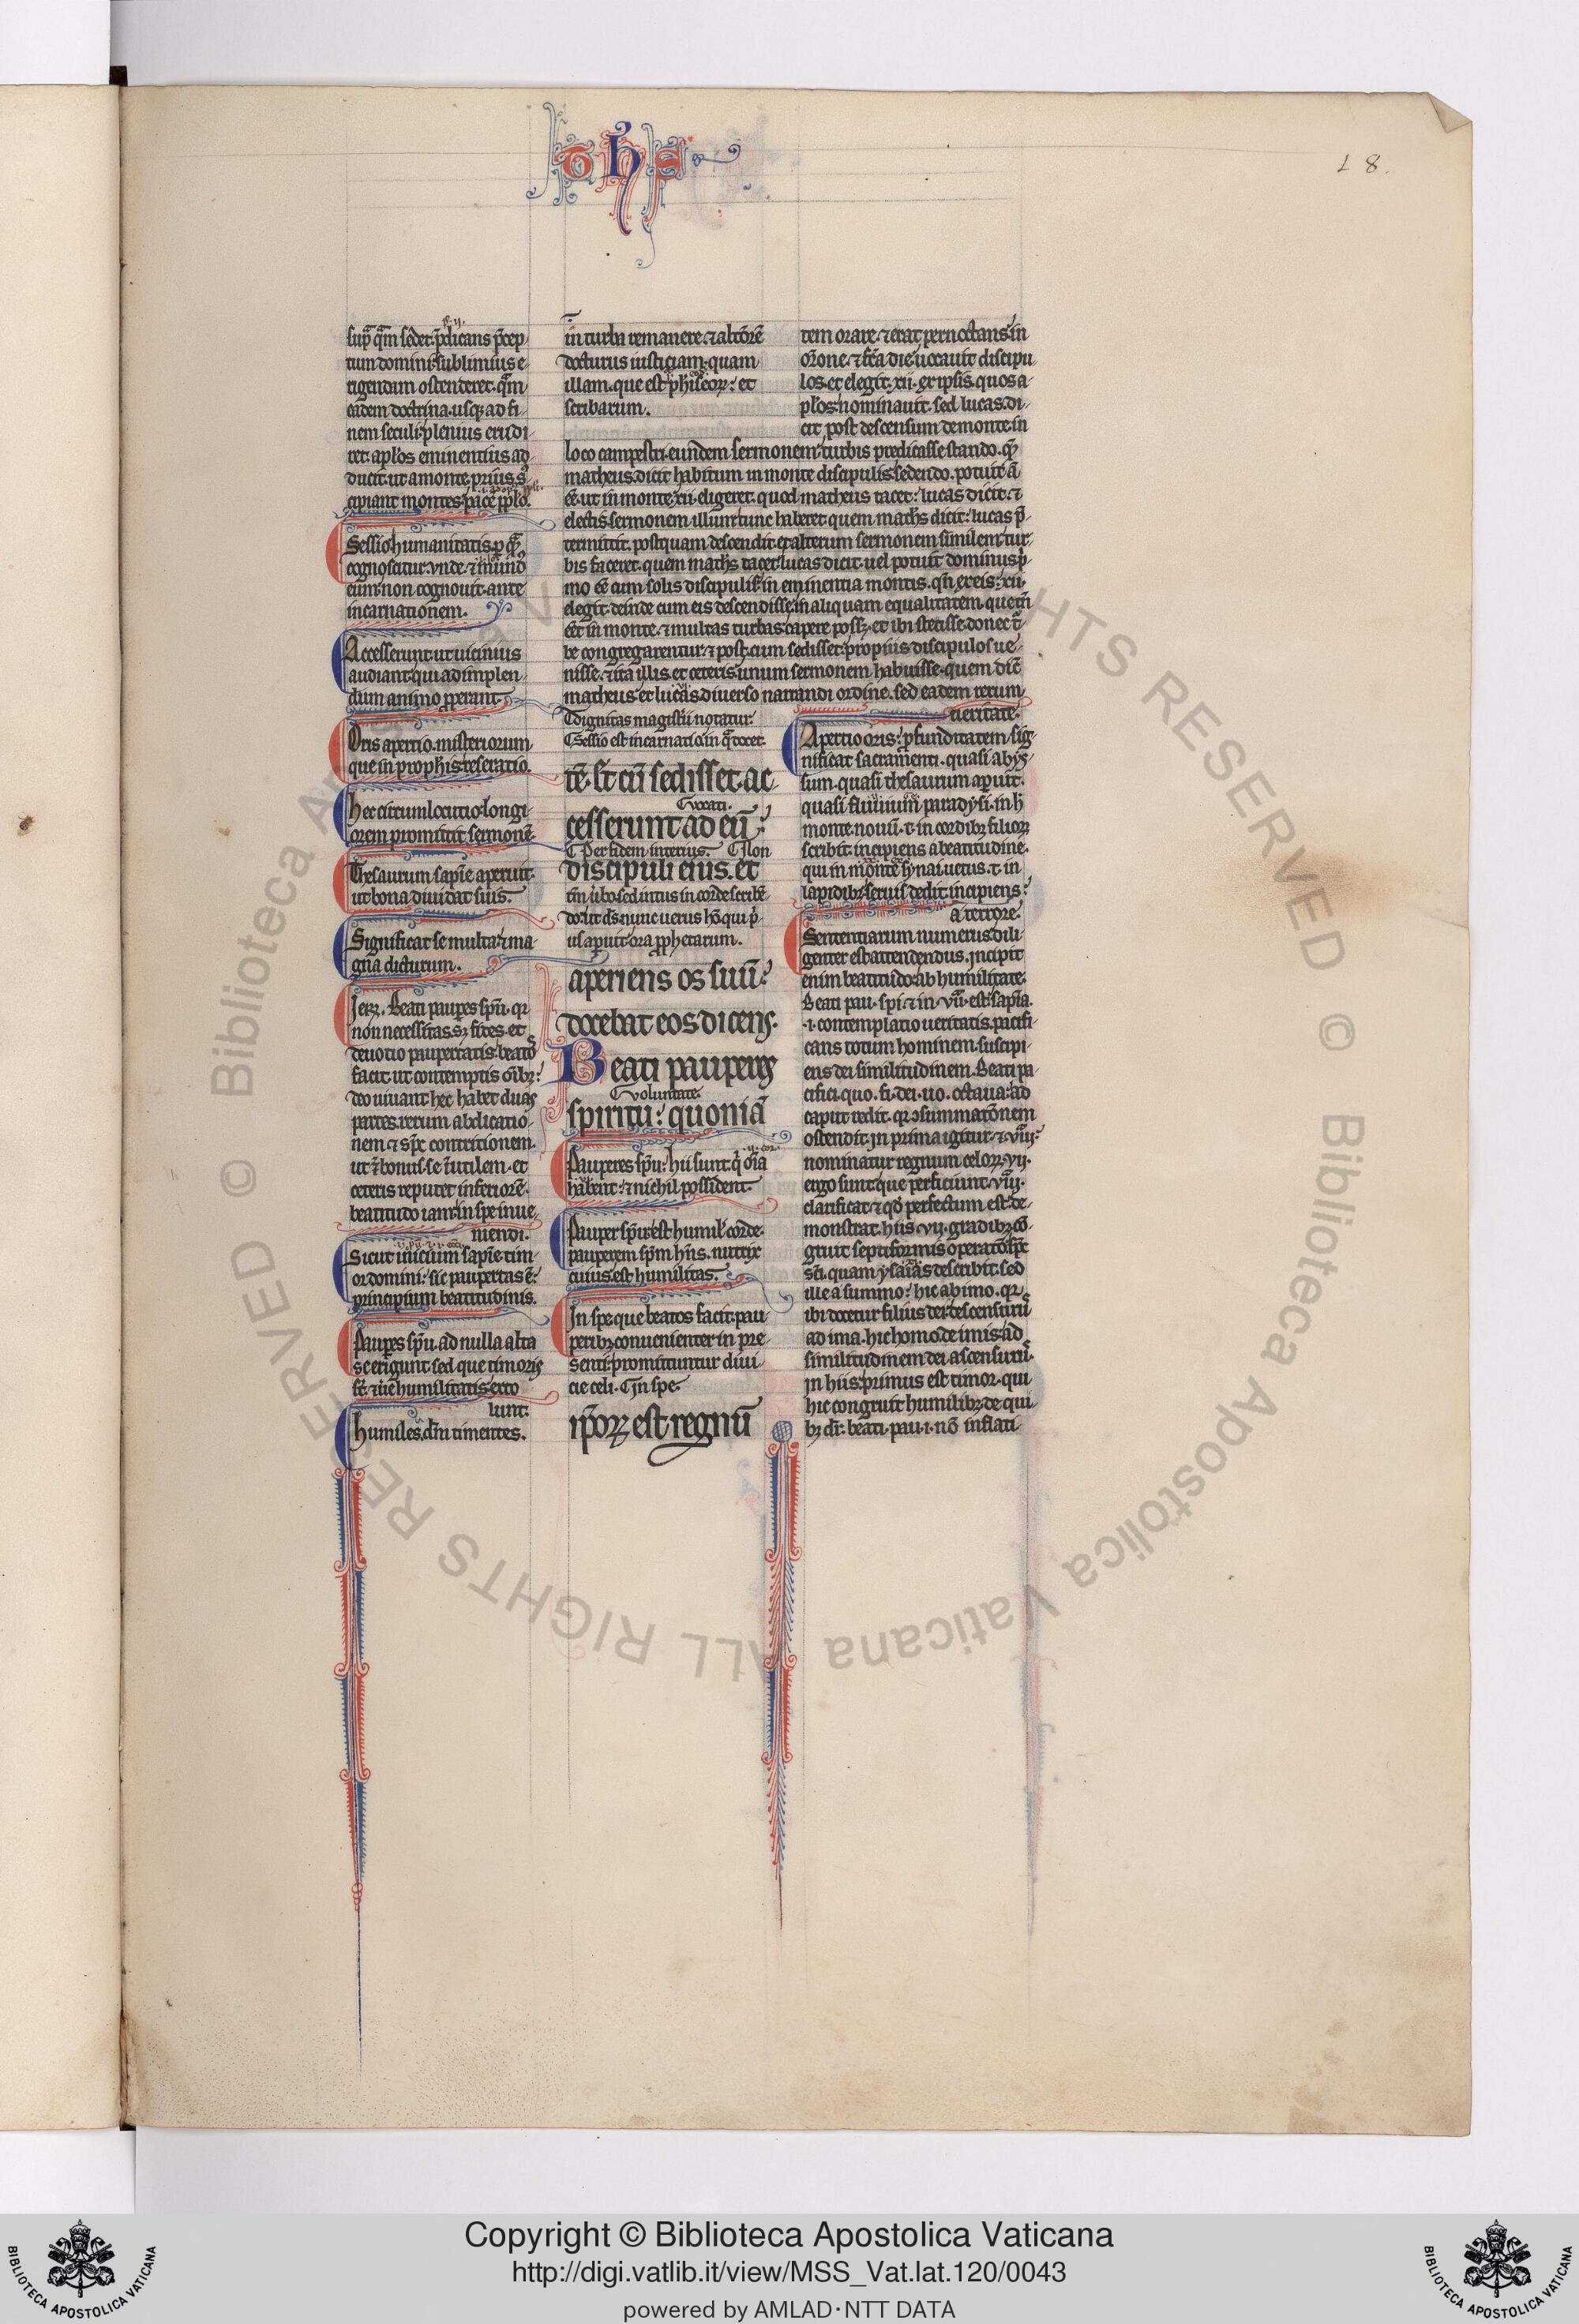 18.
supra quam sedet predicans precep
tum domini sublimius e
rigendum ostenderet
eadem doctrina usque ad fi
nem seculi plenius erudi
ret. apostolos eminentius ad
ducit. ut a monte prius
cipiant montes pacem
Sessio humanitatis
cognoscitur. vnde. mundus
eum non cognouit. ante
incarnationem.
Accesserunt ut uicinius
audiant qui ad implen
dum animo
Oris apertio. misteriorum
que in prophetis reseratio.
hec circumlocutio longi
orem promittit sermonem.
Thesaurum sapientie aperuit.
ut bona diuidat suis.
Significat se multa et ma
gna dicturum.
Ierz. Beati pauperes spiritu. quia
non necessitas. sed fides. et
deuotio paupertatis beatos
facit. ut contemptis omnibus:
deo uiuant. hec habet duas
partes. rerum abdicatio
nem. et spiritus contritionem.
ut bonus se inutilem. et
ceteris reputet inferiorem.
beatitudo iam in spe inue
niendi.
Sicut inicium sapientie tim
or domini: sic paupertas est:
principium beatitudinis.
Pauperes spiritu. ad nulla alta
se erigunt sed que timoris
sunt humilitatis exco
lunt.
humiles. deum timentes.
in turba remanere. et altiorem
docturus iusticiam. quam
illam. que est phariseorum: et
scribarum.
Dignitas magistri notatur.
Sessio est incarnatio in qua docet.
tem. et cum sedisset. ac
Vocati.
cesserunt ad eum:
Per fidem interius. Non
discipuli eius. et
tantum uerbo sed intus in corde scriben
do. ut deus. nunc uerus homo qui pri
us aperuit ora prophetarum.
aperiens os suum:
docebat eos dicens.
Beati pauperes
voluntate.
spiritu: quoniam
Pauperes spiritu: hii sunt. qui omnia
habent: et nichil possident.
Pauper spiritu. est humilis corde.
pauperem spiritum habens. nutrix
cuius est humilitas.
In spe que beatos facit. pau
peribus conuenienter in pre
senti promittuntur diui
cie celi. In spe.
ipsorum est regnum
tem orare. et erat pernoctans in
oratione. et facta die uocauit discipu
los. et elegit. xii. ex ipsis. quos a
postolos nominauit. sed lucas. di
cit post descensum de monte. in
loco campestri. eundem sermonem turbis predicasse stando.
matheus dicit habitum in monte discipulis sedendo. potuit autem
esse. ut in monte. xii. eligeret. quod matheus tacet: lucas dicit. et
electis sermonem illum tunc haberet quem matheus dicit: lucas pre
termittit. postquam descendit. et alterum sermonem similem tur
bis faceret. quem matheus tacet lucas dicit. uel potuit dominus pri
mo esse cum solis discipulis in eminentia montis. quando ex eis. xii.
elegit. deinde cum eis descendisse. in aliquam equalitatem. que tamen
esset in monte. et multas turbas capere posset. et ibi stetisse donec tur
be congregarentur. et post. cum sedisset. propius discipulos ue
nisse. et ita illis. et ceteris unum sermonem habuisse. quem dicit
matheus et lucas diuerso narrandi ordine. sed eadem rerum
ueritate.
Apertio oris: profunditatem sig
nificat sacramenti. quasi abys
sum. quasi thesaurum aperuit.
quasi fluuium paradysi. in h
monte. nouum. t. in cordibus filiorum
scribit. incipiens a beatitudine.
qui in monte synai. uetus. t. in
lapidibus seruis dedit. incipiens:
a terrore.
Sententiarum numerus. dili
genter est attendendus. incipit
enim beatitudo. ab humilitate.
Beati pau. spi. et in. vii. est sapientia.
.i. contemplatio ueritatis. pacifi
cans totum hominem. suscipi
ens dei similitudinem. Beati pa
cifici. quo. fi. dei. uo. octaua: ad
caput redit. quia consummationem
ostendit. in prima igitur. et viii.
nominatur regnum celorum. vii.
ergo sunt que perficiunt. viii.
clarificat. et quod perfectum est. de
monstrat. hiis. vii. gradibus. con
gruit septiformis operatio spiritus
sancti. quam ysaias describit. sed
ille a summo: hic ab imo. quia
ibi docetur filius dei descensurus
ad ima. hic homo de imis. ad
similitudinem dei ascensurus.
in hiis. primus est timor. qui
hic congruit humilibus. de qui
bus dicitur: beati. pau. i. non inflati
Copyright © Biblioteca Apostolica Vaticana
http://digi.vatlib.it/view/MSS_Vat.lat.120/0043
powered by AMLAD·NTT DATA
BIBLIOTECA APOSTOLICA VATICANA
BIBLIOTECA APOSTOLICA VATICANA
© Biblioteca Apostolica Vaticana ALL RIGHTS RESERVED